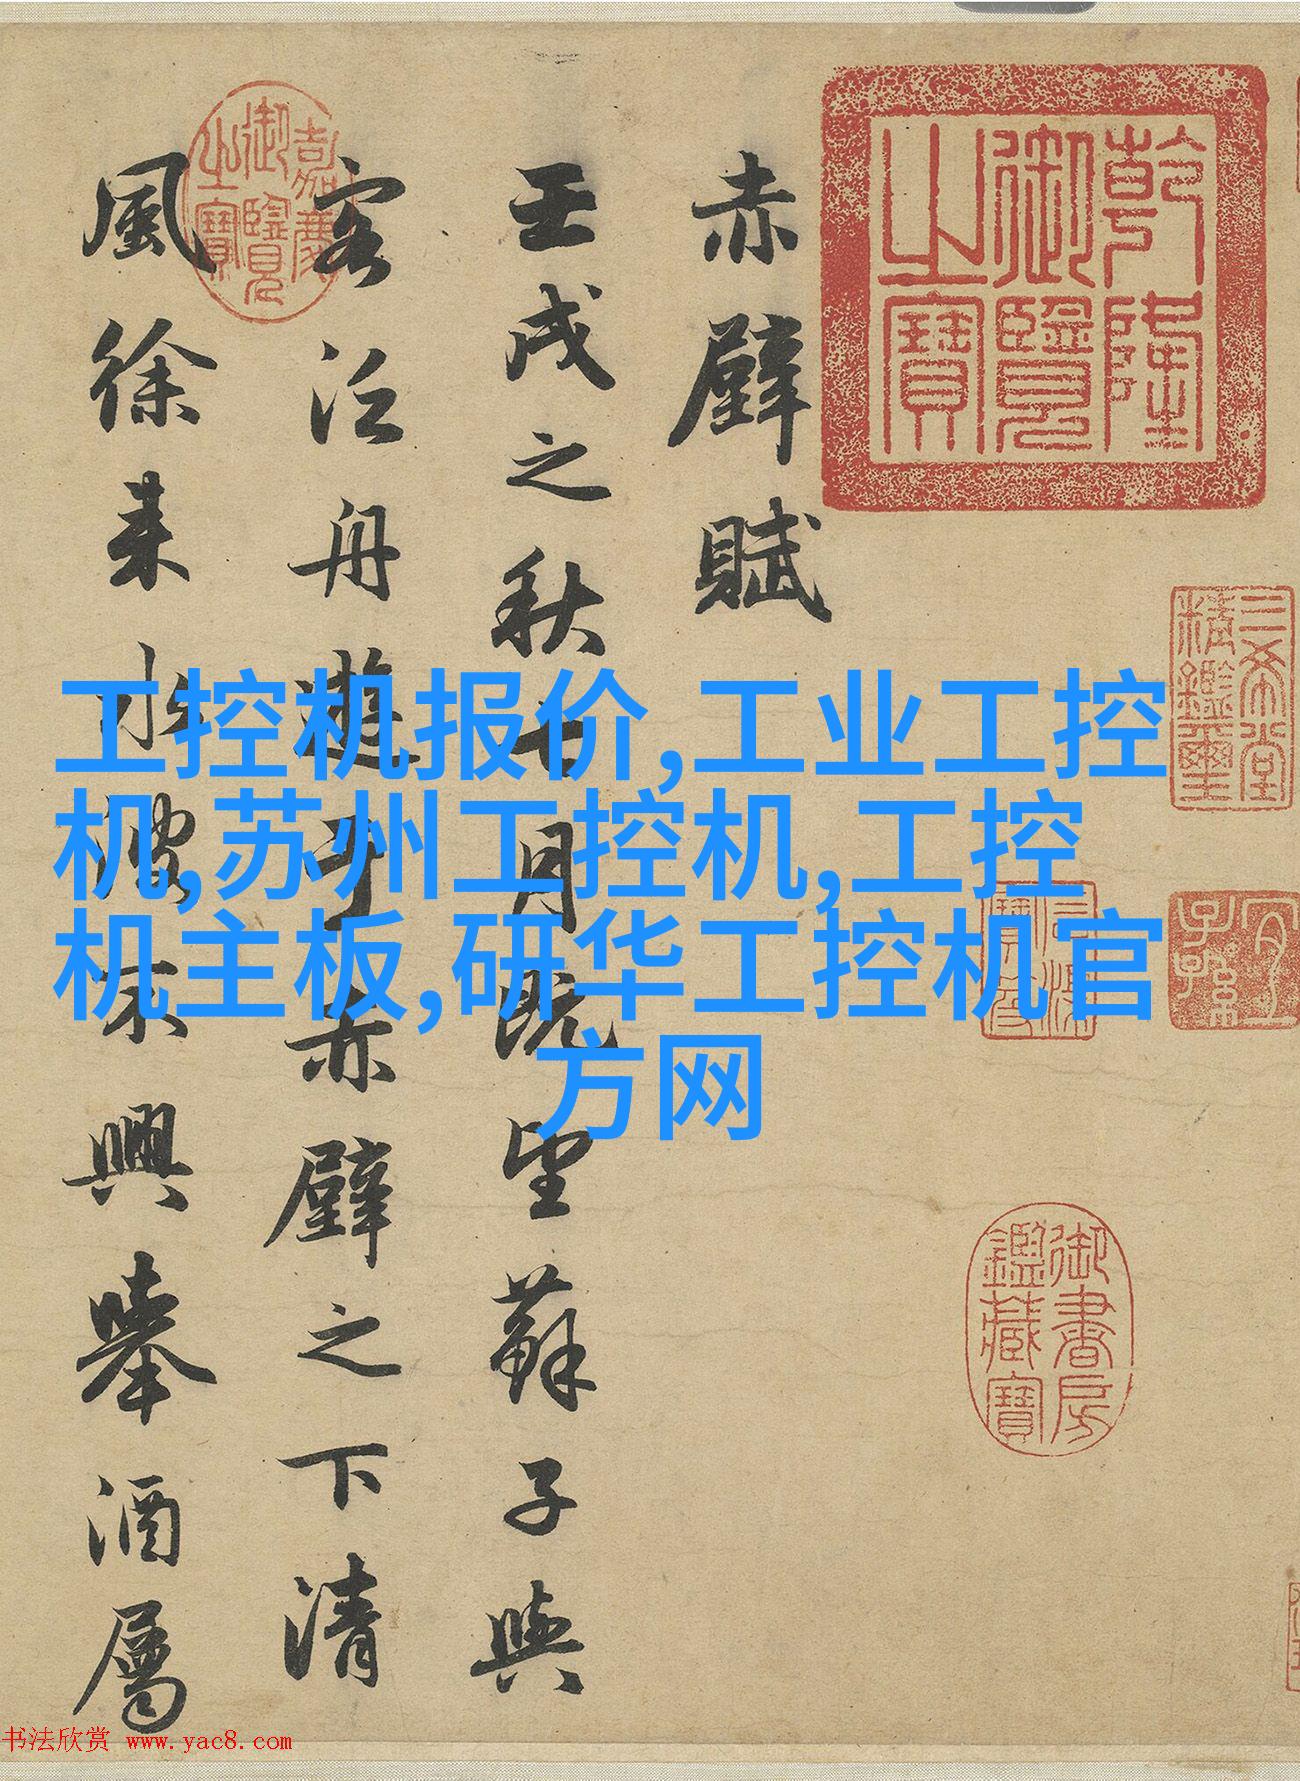 赤壁賦
壬戌之秋七月既望蘇子與
客泛舟遊于赤壁之下清
風徐来水波不興舉酒屬
乾隆御覽之寶
嘉慶御覽之寶
三希堂精鑑璽
宜子孫
御書房鑑藏寶
工控机报价,工业工控
机,苏州工控机,工控
机主板,研华工控机官
方网
书法欣赏 www.yac8.com